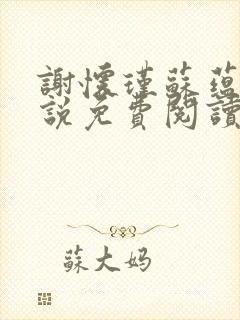 謝懷瑾蘇蘊
説免費閱讀
蘇大妈